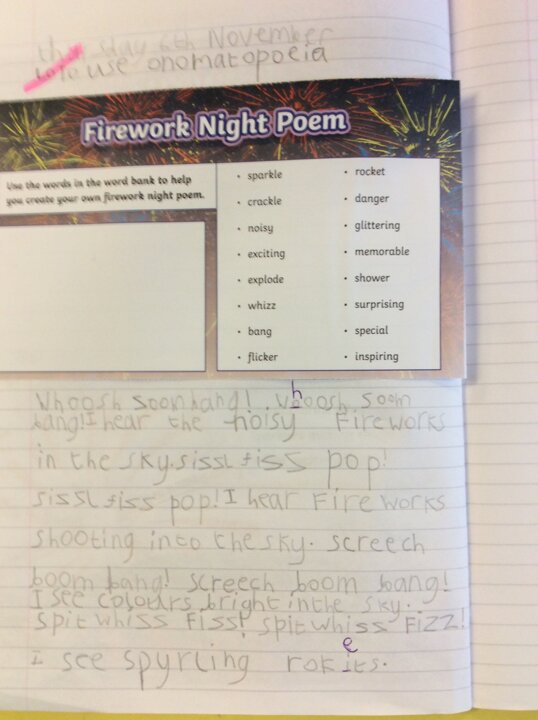 thursday 6th November
to to use onomatopoeia
Firework Night Poem
Use the words in the word bank to help
you create your own firework night poem.
• sparkle
• crackle
• noisy
• exciting
• explode
• whizz
• bang
• flicker
• rocket
• danger
• glittering
• memorable
• shower
• surprising
• special
• inspiring
Whoosh soom bang! Whoosh soom
bang! I hear the noisy Fireworks
in the sky. sissl fiss pop!
sissl fiss pop! I hear Fireworks
shooting into the sky. screech
boom bang! screech boom bang!
I see colours bright in the sky.
Spit whiss Fiss! spit whiss FiZZ!
e
i see spyrling rokits.